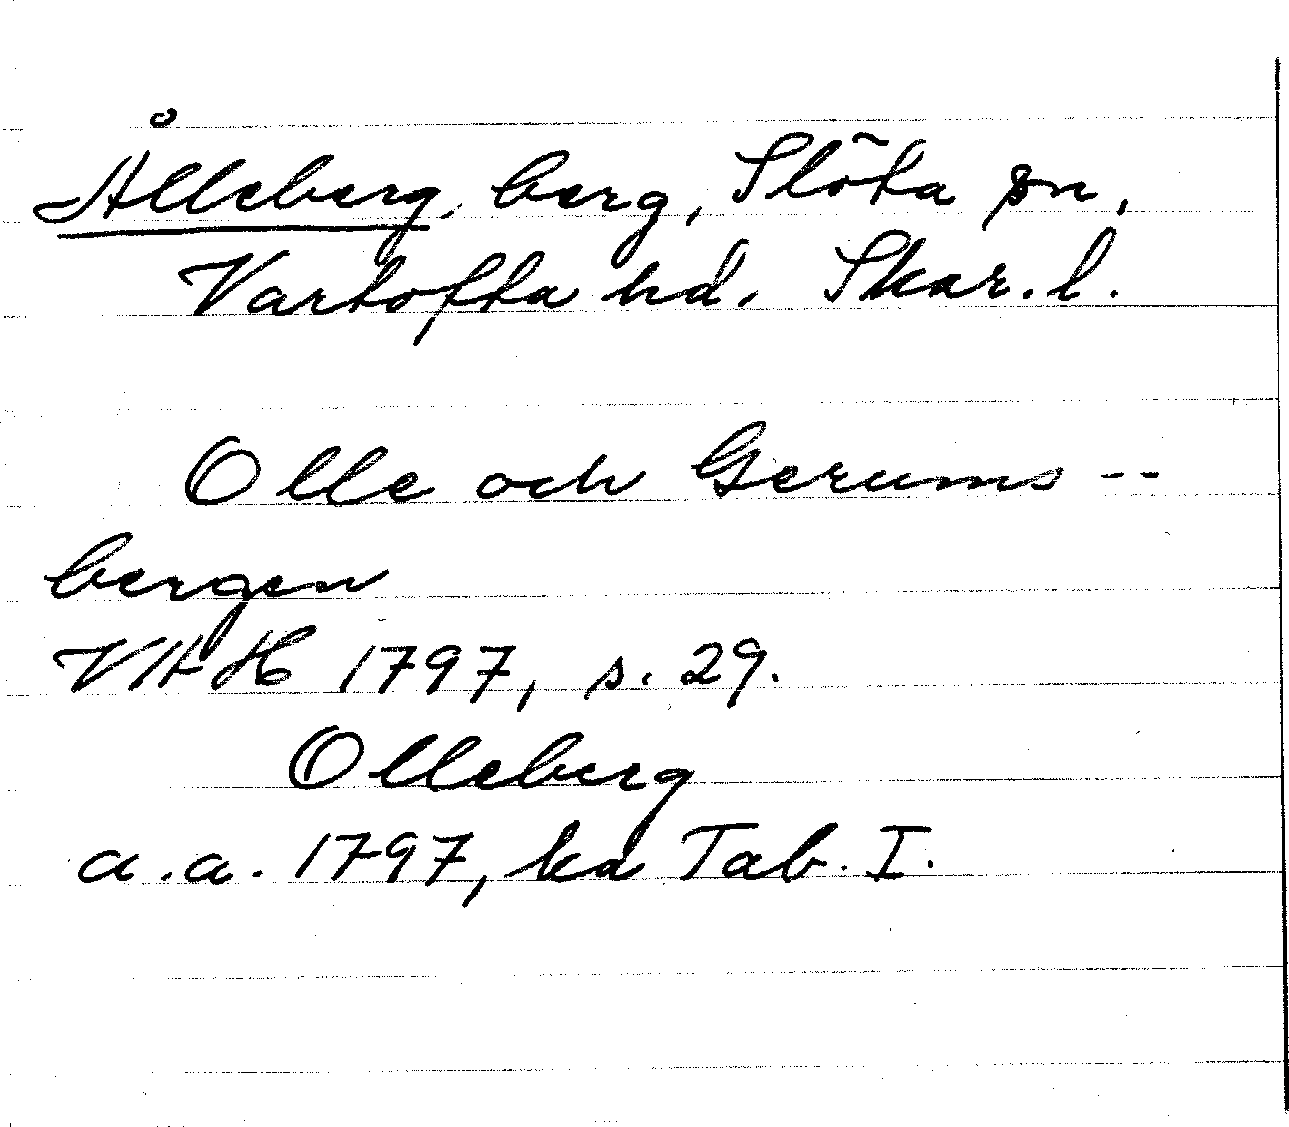 Ålleberg, berg, Slöta sn,
Vartofta hd. Skar. l.
Olle och Gerums --
bergen
VAH 1797, s. 29.
Olleberg
a.a. 1797, ka Tab. I.